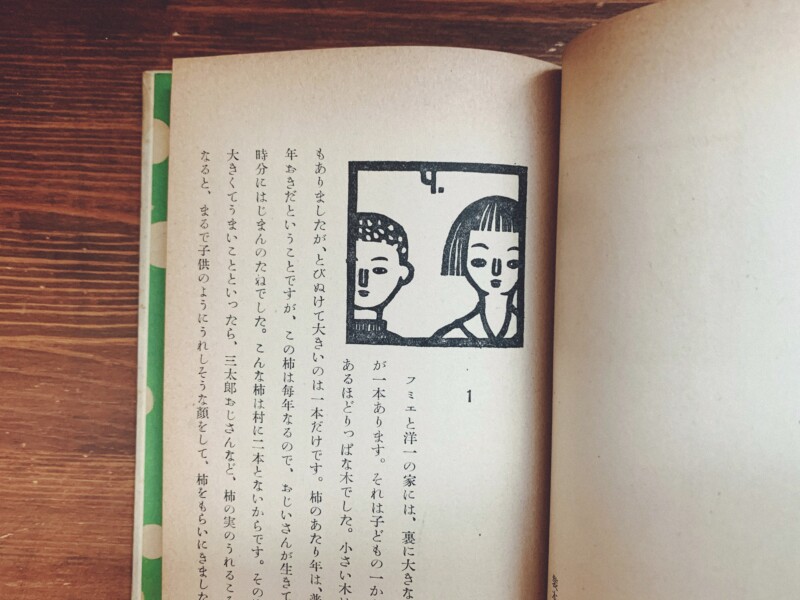 1
フミエと洋一の家には、裏に大きな
が一本あります。それは子どもの一か
あるほどりっぱな木でした。小さい木
もありましたが、とびぬけて大きいのは一本だけです。柿のあたり年は、
年おきだということですが、この柿は毎年なるので、おじいさんが生きて
時分にはじまんのたねでした。こんな柿は村に二本とないからです。その
大きくてうまいことといったら、三太郎おじさんなど、柿の実のうれるころ
なると、まるで子供のようにうれしそうな顔をして、柿をもらいにきました
9.